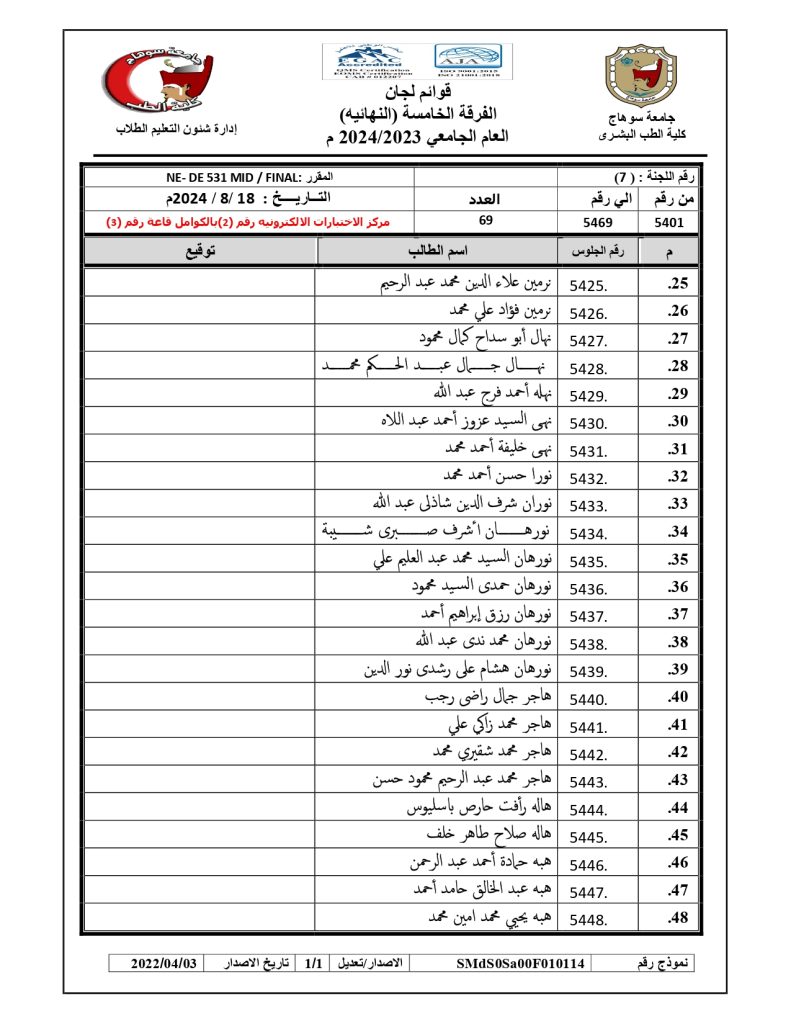 جامعة سوهاج
كلية الطب
إدارة شئون التعليم الطلاب
EGAC
Accredited
QMS Certification
EOMS Certification
CAB # 012207
AJA
ISO 9001:2015
ISO 21001:2018
جامعة سوهاج
كلية الطب البشرى
قوائم لجان
الفرقة الخامسة (النهائيه)
العام الجامعي 2024/2023 م
رقم اللجنة : ( 7) المقرر :NE- DE 531 MID / FINAL
من رقم الي رقم العدد التــاريــــخ : 18 /8 / 2024م
5401 5469 69 مركز الاختبارات الالكترونيه رقم (2)بالكوامل قاعة رقم (3)
م رقم الجلوس اسم الطالب توقيع
25. 5425. نرمين علاء الدين محمد عبد الرحيم
26. 5426. نرمين فؤاد علي محمد
27. 5427. نهال أبو سداح كمال محمود
28. 5428. نهـــال جـــمال عبـــد الحـــكم محمـــد
29. 5429. نهله أحمد فرج عبد الله
30. 5430. نهى السيد عزوز أحمد عبد اللاه
31. 5431. نهى خليفة أحمد محمد
32. 5432. نورا حسن أحمد محمد
33. 5433. نوران شرف الدين شاذلى عبد الله
34. 5434. نورهـــان أشرف صـــبرى شـــيبة
35. 5435. نورهان السيد محمد عبد العليم علي
36. 5436. نورهان حمدى السيد محمود
37. 5437. نورهان رزق إبراهيم أحمد
38. 5438. نورهان محمد ندى عبد الله
39. 5439. نورهان هشام على رشدى نور الدين
40. 5440. هاجر جمال راضى رجب
41. 5441. هاجر محمد زاكي علي
42. 5442. هاجر محمد شقيري محمد
43. 5443. هاجر محمد عبد الرحيم محمود حسن
44. 5444. هاله رأفت حارص باسليوس
45. 5445. هاله صلاح طاهر خلف
46. 5446. هبه حمادة أحمد عبد الرحمن
47. 5447. هبه عبد الخالق حامد أحمد
48. 5448. هبه يحيي محمد امين محمد
نموذج رقم SMdS0Sa00F010114 الاصدار/تعديل 1/1 تاريخ الاصدار 2022/04/03